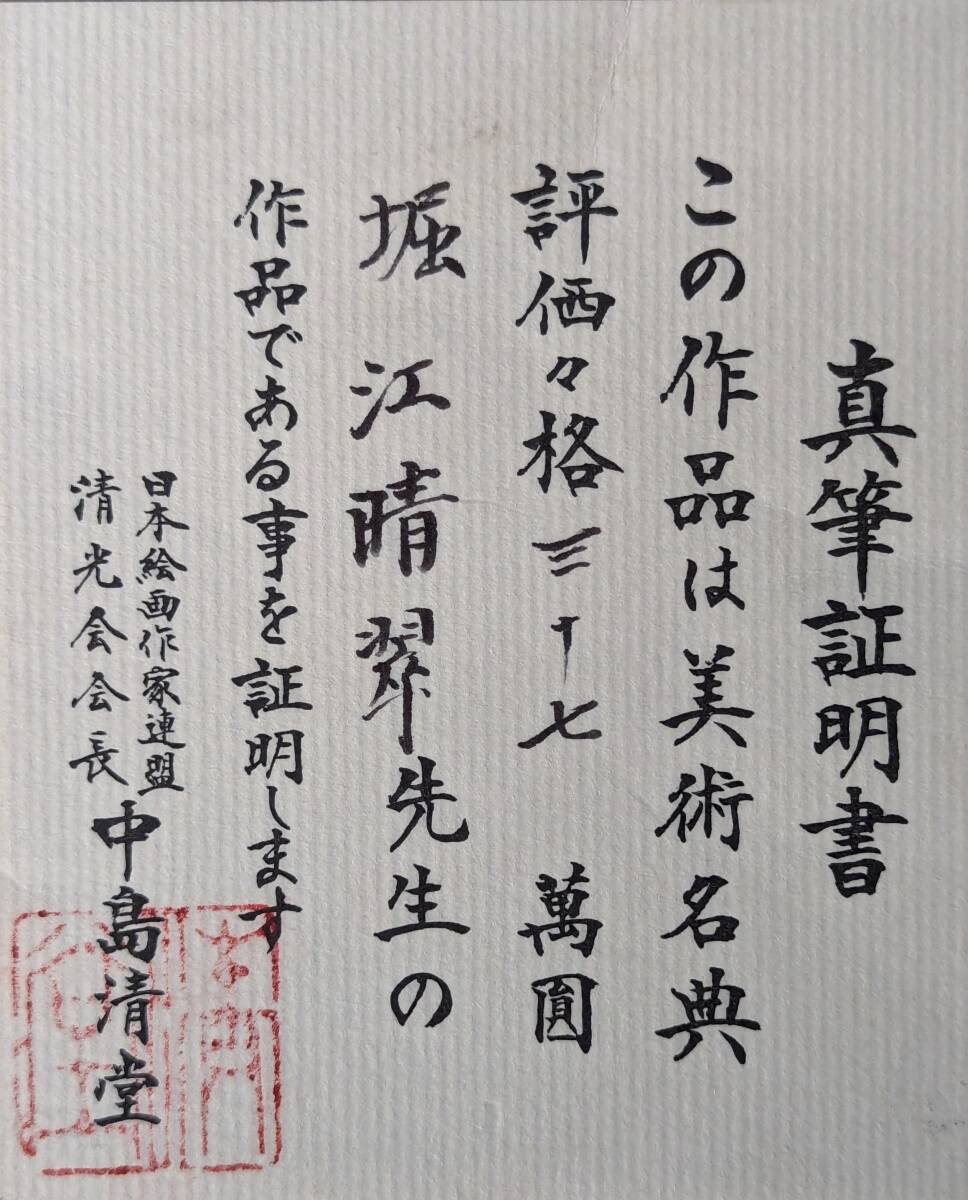 真筆証明書
この作品は美術名典
評価々格三十七萬圓
堀江晴翠先生の
作品である事を証明します
日本絵画作家連盟
清光会会長
中島清堂